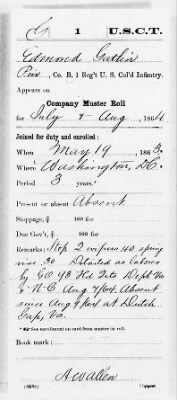 G 1 U.S.C.T.
Edmond Gatlin
Priv, Co. B, 1 Reg't U. S. Col'd Infantry.
Appears on
Company Muster Roll
for July & Aug, 1864.
Joined for duty and enrolled:
When May 19, 1863.
Where Washington, D.C.
Period 3 years.*
Present or absent Absent
Stoppage, $ 100 for
Due Gov't, $ 100 for
Remarks: Stop 2 wipers 40 spring
vise .30 Detailed as laborer
by G.O. 98 Hd Qrs Dept Va
& N.C. Aug 7/64. Absent
since Aug 9/64 at Dutch
Gap, Va.
* See enrollment on card from muster-in roll.
Book mark:
A W Allen
Copyist.